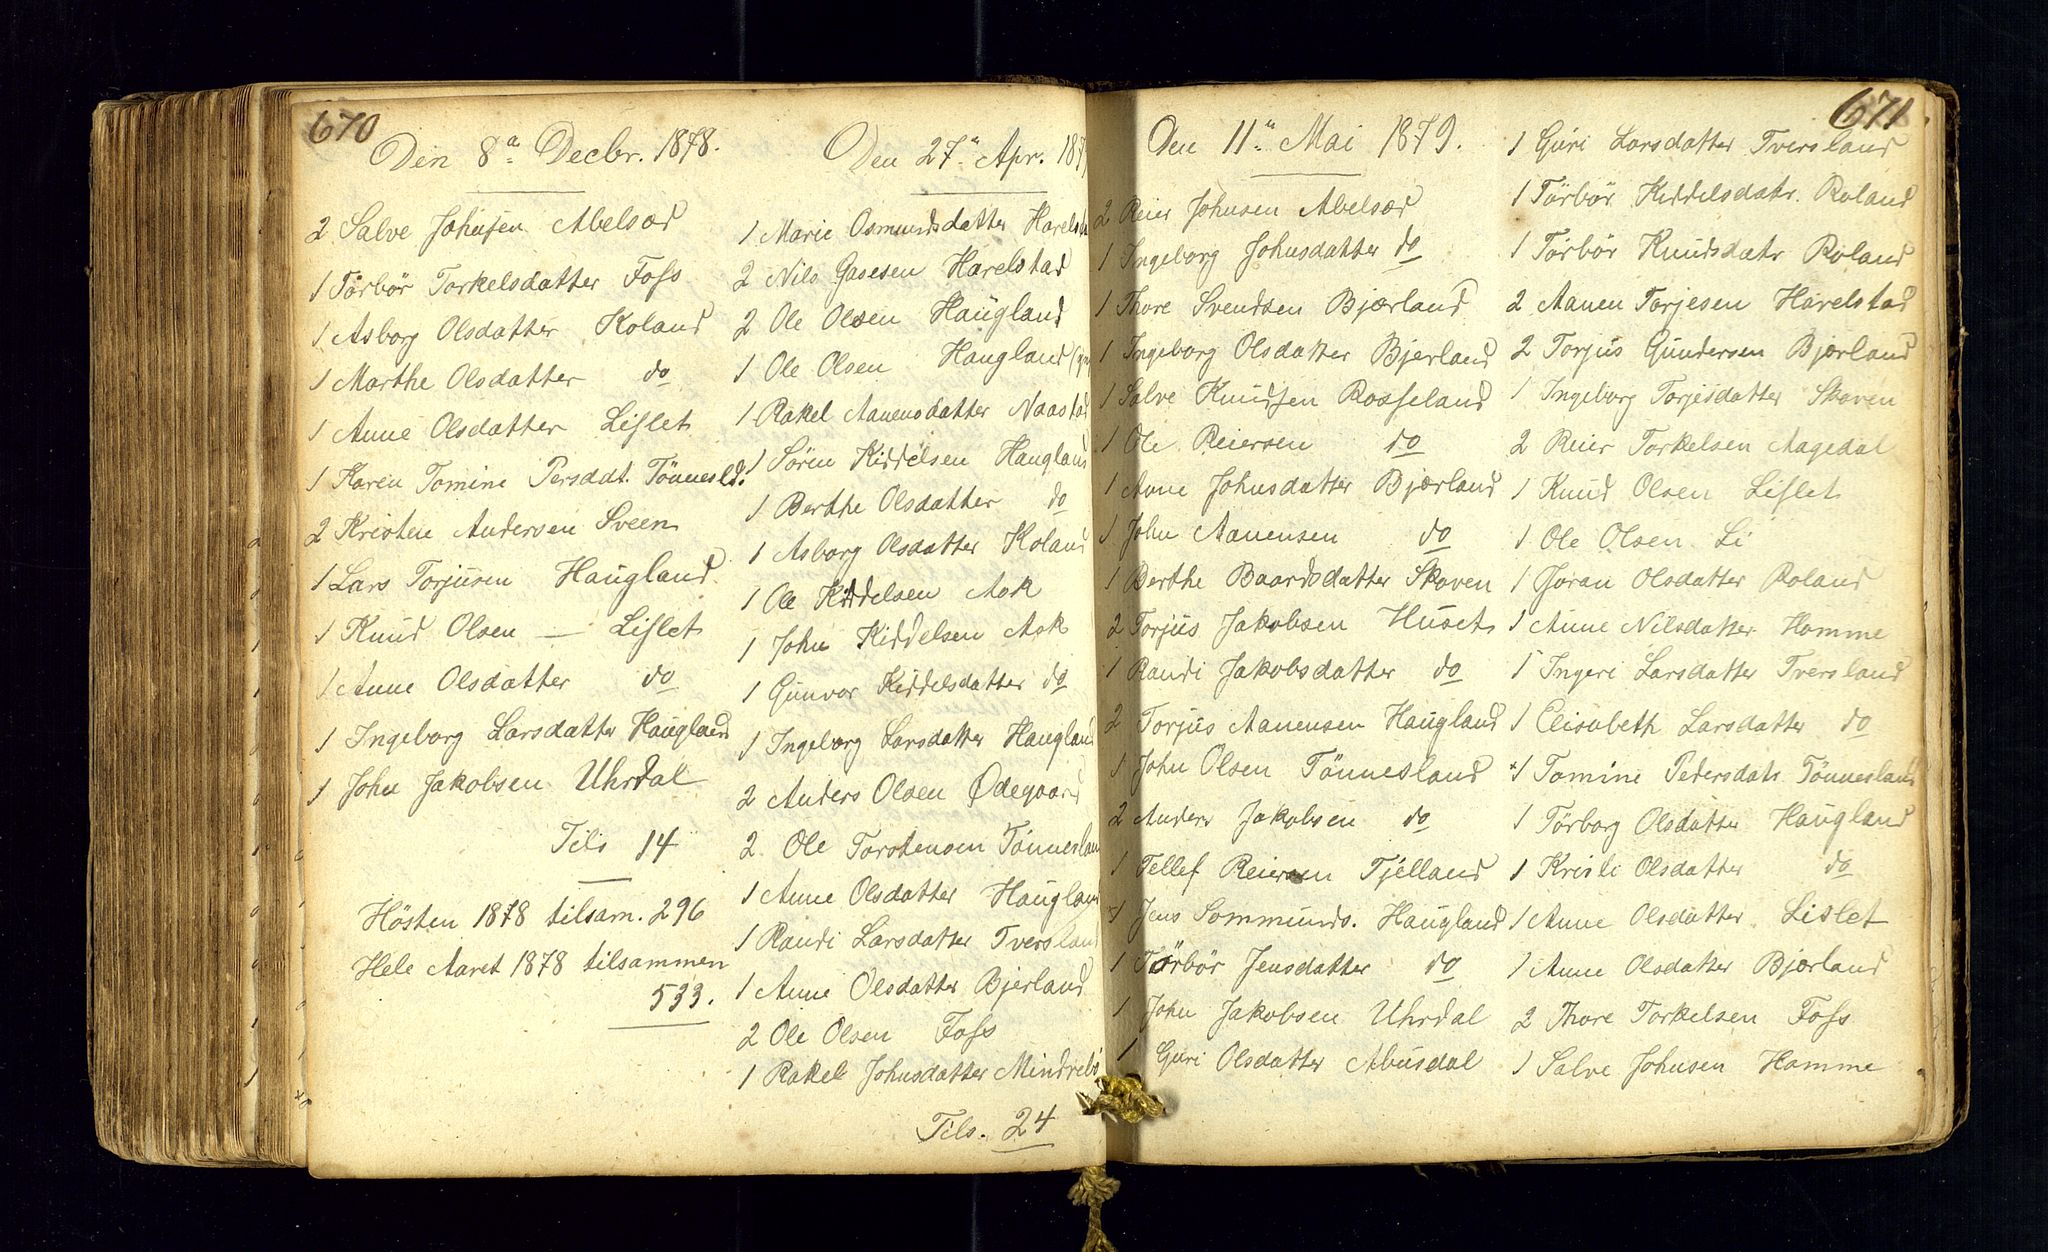 670
Den 8ª Decbr. 1878.
2 Salve Johnsen Abelsæd
1 Törbör Torkelsdatter Foss
1 Asborg Olsdatter Roland
1 Marthe Olsdatter do
1 Anne Olsdatter Lislet
1 Karen Tomine Persdat. Tönnesld.
2 Kristen Andersen Sveen
1 Lars Torjusen Haugland
1 Knud Olsen — Lislet
1 Anne Olsdatter do
1 Ingeborg Larsdatter Haugland
1 John Jakobsen Uhrdal
Tils 14
Hösten 1878 tilsam. 296
Hele Aaret 1878 tilsammen
533.
Den 27. Apr. 187
1 Marie Osmundsdatter
2 Nils Gasesen Harelstad
2 Ole Olsen Haugland
1 Ole Olsen Haugland
1 Rakel Aanensdatter Naastad
1 Sören Kiddelsen Haugland
1 Berthe Olsdatter do
1 Asborg Olsdatter Roland
1 Ole Kiddelsen Ask
1 John Kiddelsen Ask
1 Gunvor Kiddelsdatter do
1 Ingeborg Larsdatter Haugland
2 Anders Olsen Ødegaard
2 Ole Torstensen Tönnesland
1 Anne Olsdatter Haugland
1 Randi Larsdatter Tversland
1 Anne Olsdatter Bjerland
2 Ole Olsen Foss
1 Rakel Johnsdatter Mindrebö
Tils. 24
671.
Den 11. Mai 1879.
2 Reier Johnsen Abelsæd
1 Ingeborg Johnsdatter do
1 Thore Svendsen Bjærland
1 Ingeborg Olsdatter Bjerland
1 Salve Knudsen Rosseland
1 Ole Reiersen do
1 Anne Johnsdatter Bjærland
1 John Aanensen do
1 Berthe Baardsdatter Skoven
2 Torjus Jakobsen Huset
1 Randi Jakobsdatter do
2 Torjus Aanensen Haugland
1 John Olsen Tönnesland
2 Anders Jakobsen do
1 Tellef Reiersen Tjelland
1 Jens Sommunds. Haugland
1 Törbör Jensdatter do
1 John Jakobsen Uhrdal
1 Guri Olsdatter Abusdal
1 Guri Larsdatter Tversland
1 Törbör Kiddelsdatr. Roland
1 Törbör Knudsdatr Roland
2 Aanen Torjesen Harelstad
2 Torjus Gundersen Bjærland
1 Ingeborg Torjesdatter Skoven
2 Reier Torkelsen Aagedal
1 Knud Olsen Lislet
1 Ole Olsen Li
1 Joran Olsdatter Roland
1 Anne Nilsdatter Homme
1 Ingeri Larsdatter Tversland
1 Elisabeth Larsdatter do
*1 Tomine Pedersdatr Tönnesland
1 Törborg Olsdatter Haugland
1 Kristi Olsdatter do
1 Anne Olsdatter Lislet
1 Anne Olsdatter Bjærland
2 Thore Torkelsen Foss
1 Salve Johnsen Homme